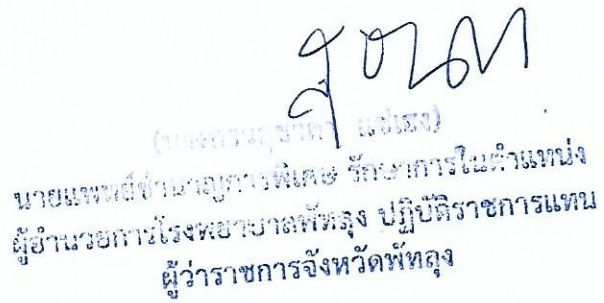 นายแพทย์ชำนาญการพิเศษ รักษาการในตำแหน่ง
ผู้อำนวยการโรงพยาบาลพัทลุง ปฏิบัติราชการแทน
ผู้ว่าราชการจังหวัดพัทลุง